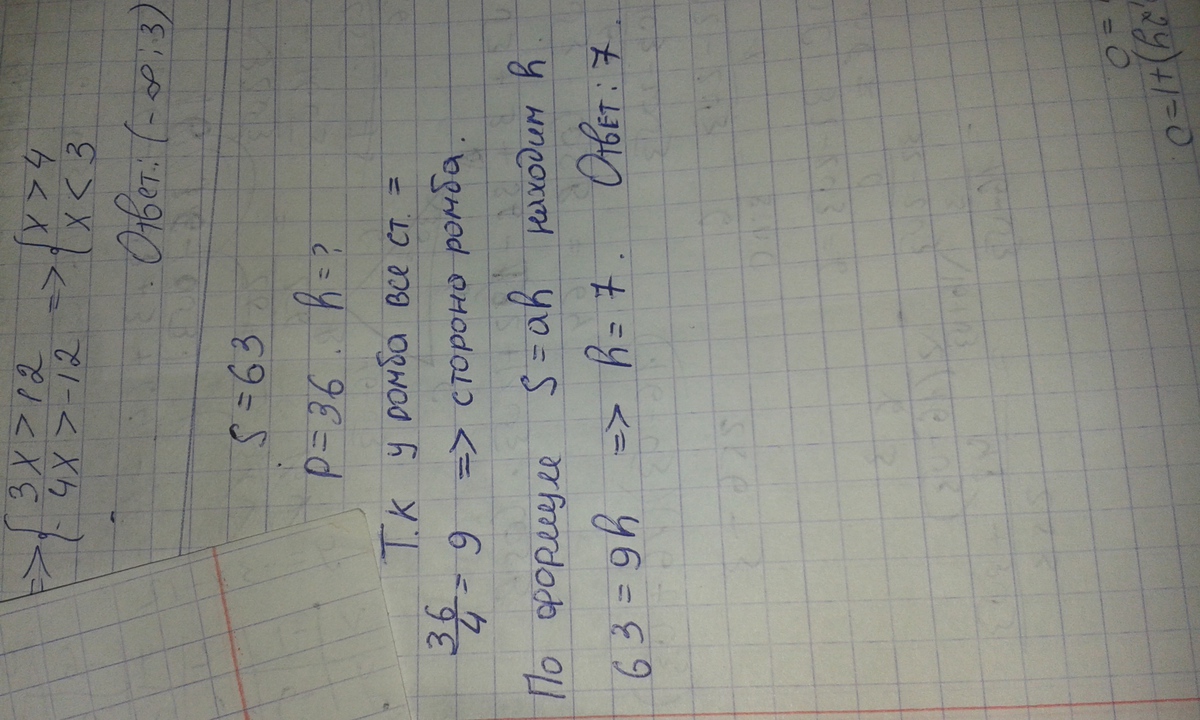 => { 3x > 12 => { x > 4
{ 4x > -12 { x < 3
Ответ: (-∞; 3)
S = 63
P = 36. h = ?
Т.К у ромба все ст. =
36/4 = 9 => стороно ромба.
По формуле S = ah находим h.
63 = 9h => h = 7. Ответ: 7.
0 =
0 = 1 +